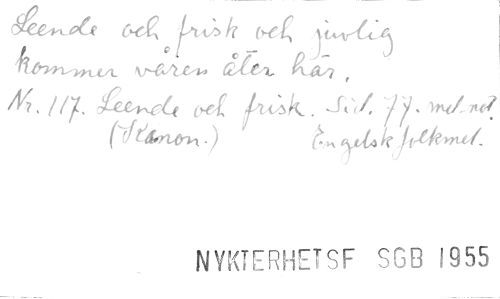 Leende och frisk och juvlig
kommer våren åter här.
Nr. 117. Leende och frisk. Sid. 77. mel.-not.
(Kanon.) Engelsk folkmel.
NYKTERHETSF SGB 1955